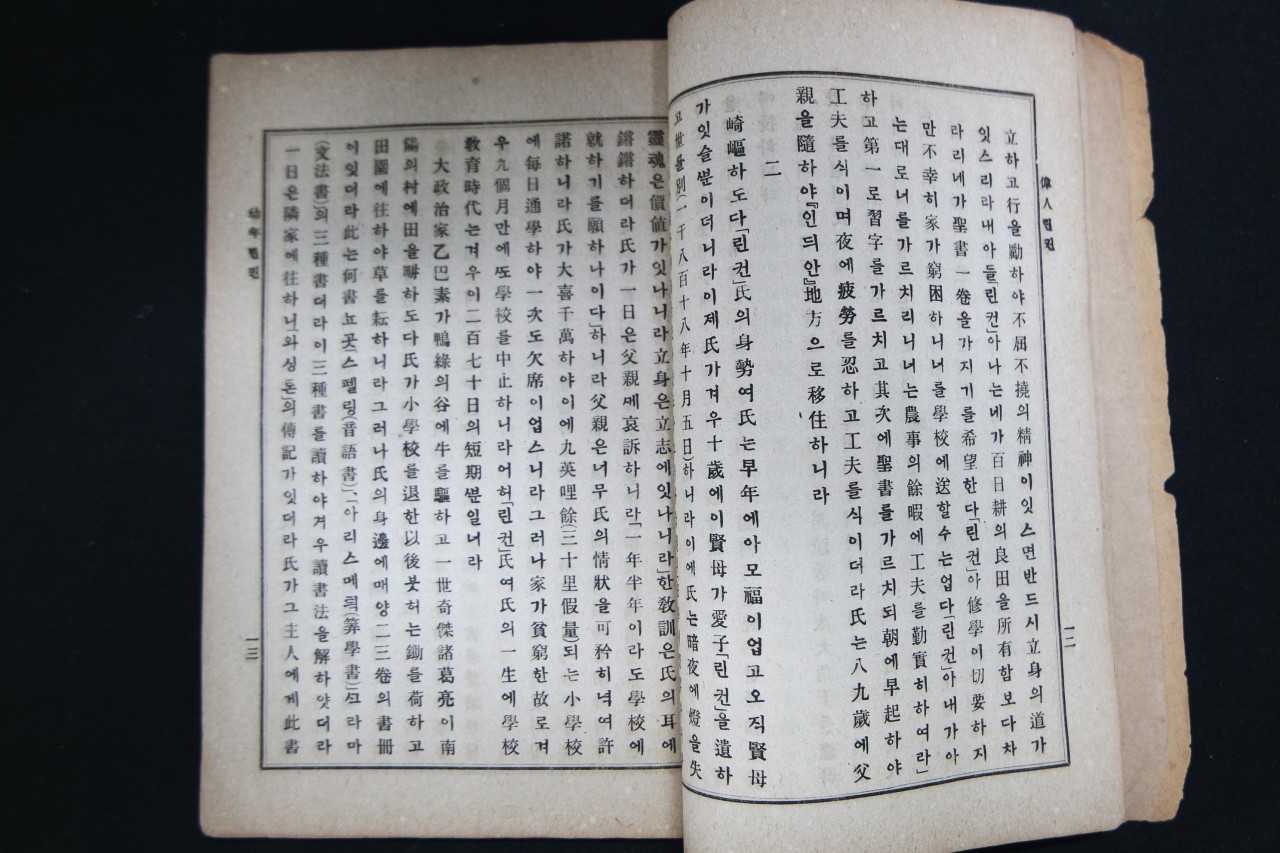 偉人린컨
立하고行을勵하야不屈不撓의精神이잇스면반드시立身의道가
잇스리라내아들「린컨」아나는네가百日耕의良田을所有함보다차
라리네가聖書一卷을가지기를希望한다「린컨」아修學이切要하지
만不幸히家가窮困하니너를學校에送할수는업다「린컨」아내가아
는대로너를가르치리니너는農事의餘暇에工夫를勤實히하여라」
하고第一로習字를가르치고其次에聖書를가르치되朝에早起하야
工夫를식이며夜에疲勞를忍하고工夫를식이더라氏는八九歲에父
親을隨하야『인듸안』地方으로移住하니라
二
崎嶇하도다「린컨」氏의身勢여氏는早年에아모福이업고오직賢母
가잇슬뿐이더니라이제氏가겨우十歲에이賢母가愛子「린컨」을遺하
고世를別(一千八百十八年十月五日)하니라이에氏는暗夜에燈을失
一二
靈魂은價値가잇나니라立身은立志에잇나니라」한敎訓은氏의耳에
鏘鏘하더라氏가一日은父親께哀訴하니라「一年半年이라도學校에
就하기를願하나이다」하니라父親은너무氏의情狀을可矜히녁여許
諾하니라氏가大喜千萬하야이에九英哩餘(三十里假量)되는小學校
에每日通學하야一次도欠席이업스니라그러나家가貧窮한故로겨
우九個月만에또學校를中止하니라어허「린컨」氏여氏의一生에學校
敎育時代는겨우이二百七十日의短期뿐일너라
大政治家乙巴素가鴨綠의谷에牛를驅하고一世奇傑諸葛亮이南
陽의村에田을耕하도다氏가小學校를退한以後붓허는鋤를荷하고
田園에往하야草를耘하니라그러나氏의身邊에매양二三卷의書冊
이잇더라此는何書뇨곳「스펠링(音語書)、「아리스메틱(筭學書)」끄라마
(文法書)의三種書더라이三種書를讀하야겨우讀書法을解하얏더라
一日은隣家에往하니「와싱톤」의傳記가잇더라氏가그主人에게此書
幼年린컨
一三